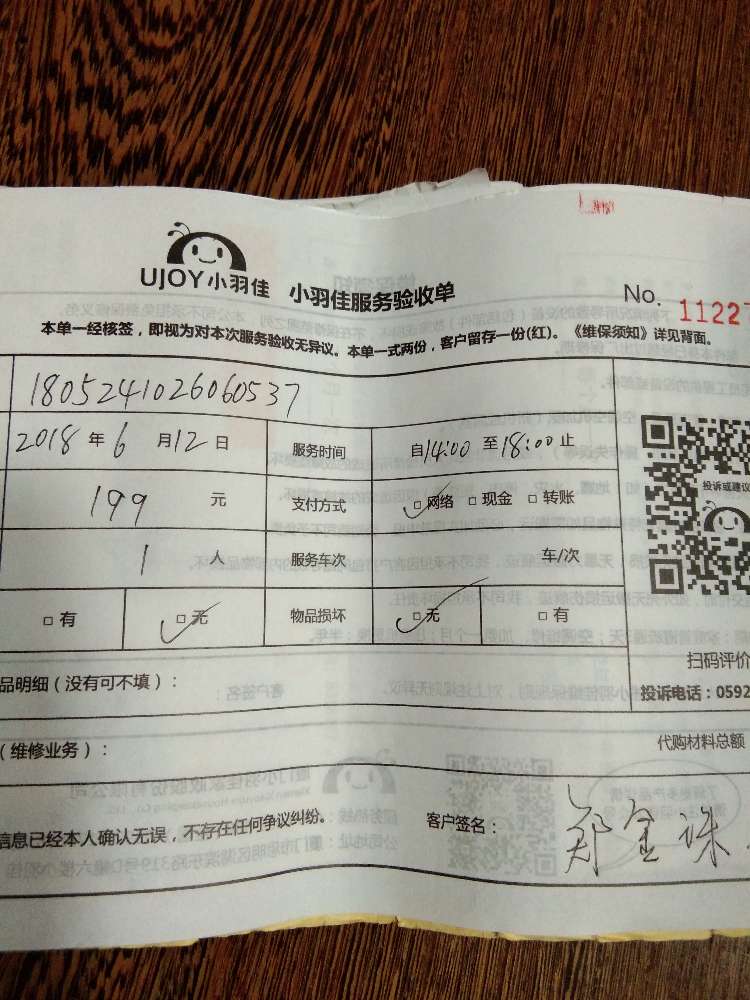 UJOY小羽佳 小羽佳服务验收单
No. 11227
本单一经核签，即视为对本次服务验收无异议。本单一式两份，客户留存一份(红)。《维保须知》详见背面。
1805241026060537
2018年6月12日 服务时间 自14:00至18:00止
199 元 支付方式 □网络 □现金 □转账
1 人 服务车次 车/次
投诉或建议
□有 □无 物品损坏 □无 □有
扫码评价
品明细（没有可不填）：
投诉电话：0592
（维修业务）：
代购材料总额
信息已经本人确认无误，不存在任何争议纠纷。 客户签名： 郑金珠